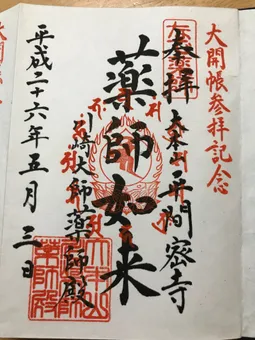 大開帳参拝記念
奉拝
大本山平間密寺
薬師如来
川崎大師薬師殿
平成二十六年五月三日